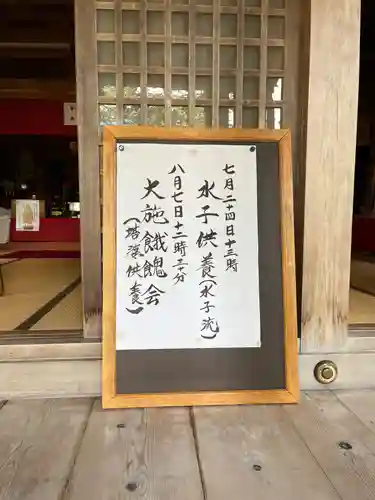 七月二十四日十三時
水子供養(水子流)
八月七日十二時三十分
大施餓鬼会
(塔婆供養)